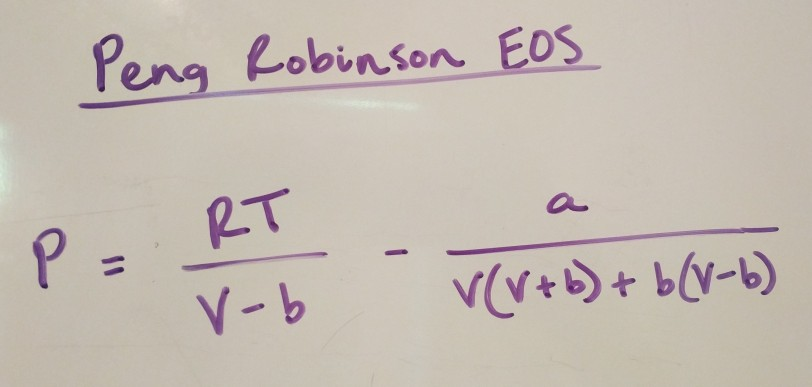 Peng Robinson EOS
P = RT / V - b - a / V(V+b) + b(V-b)